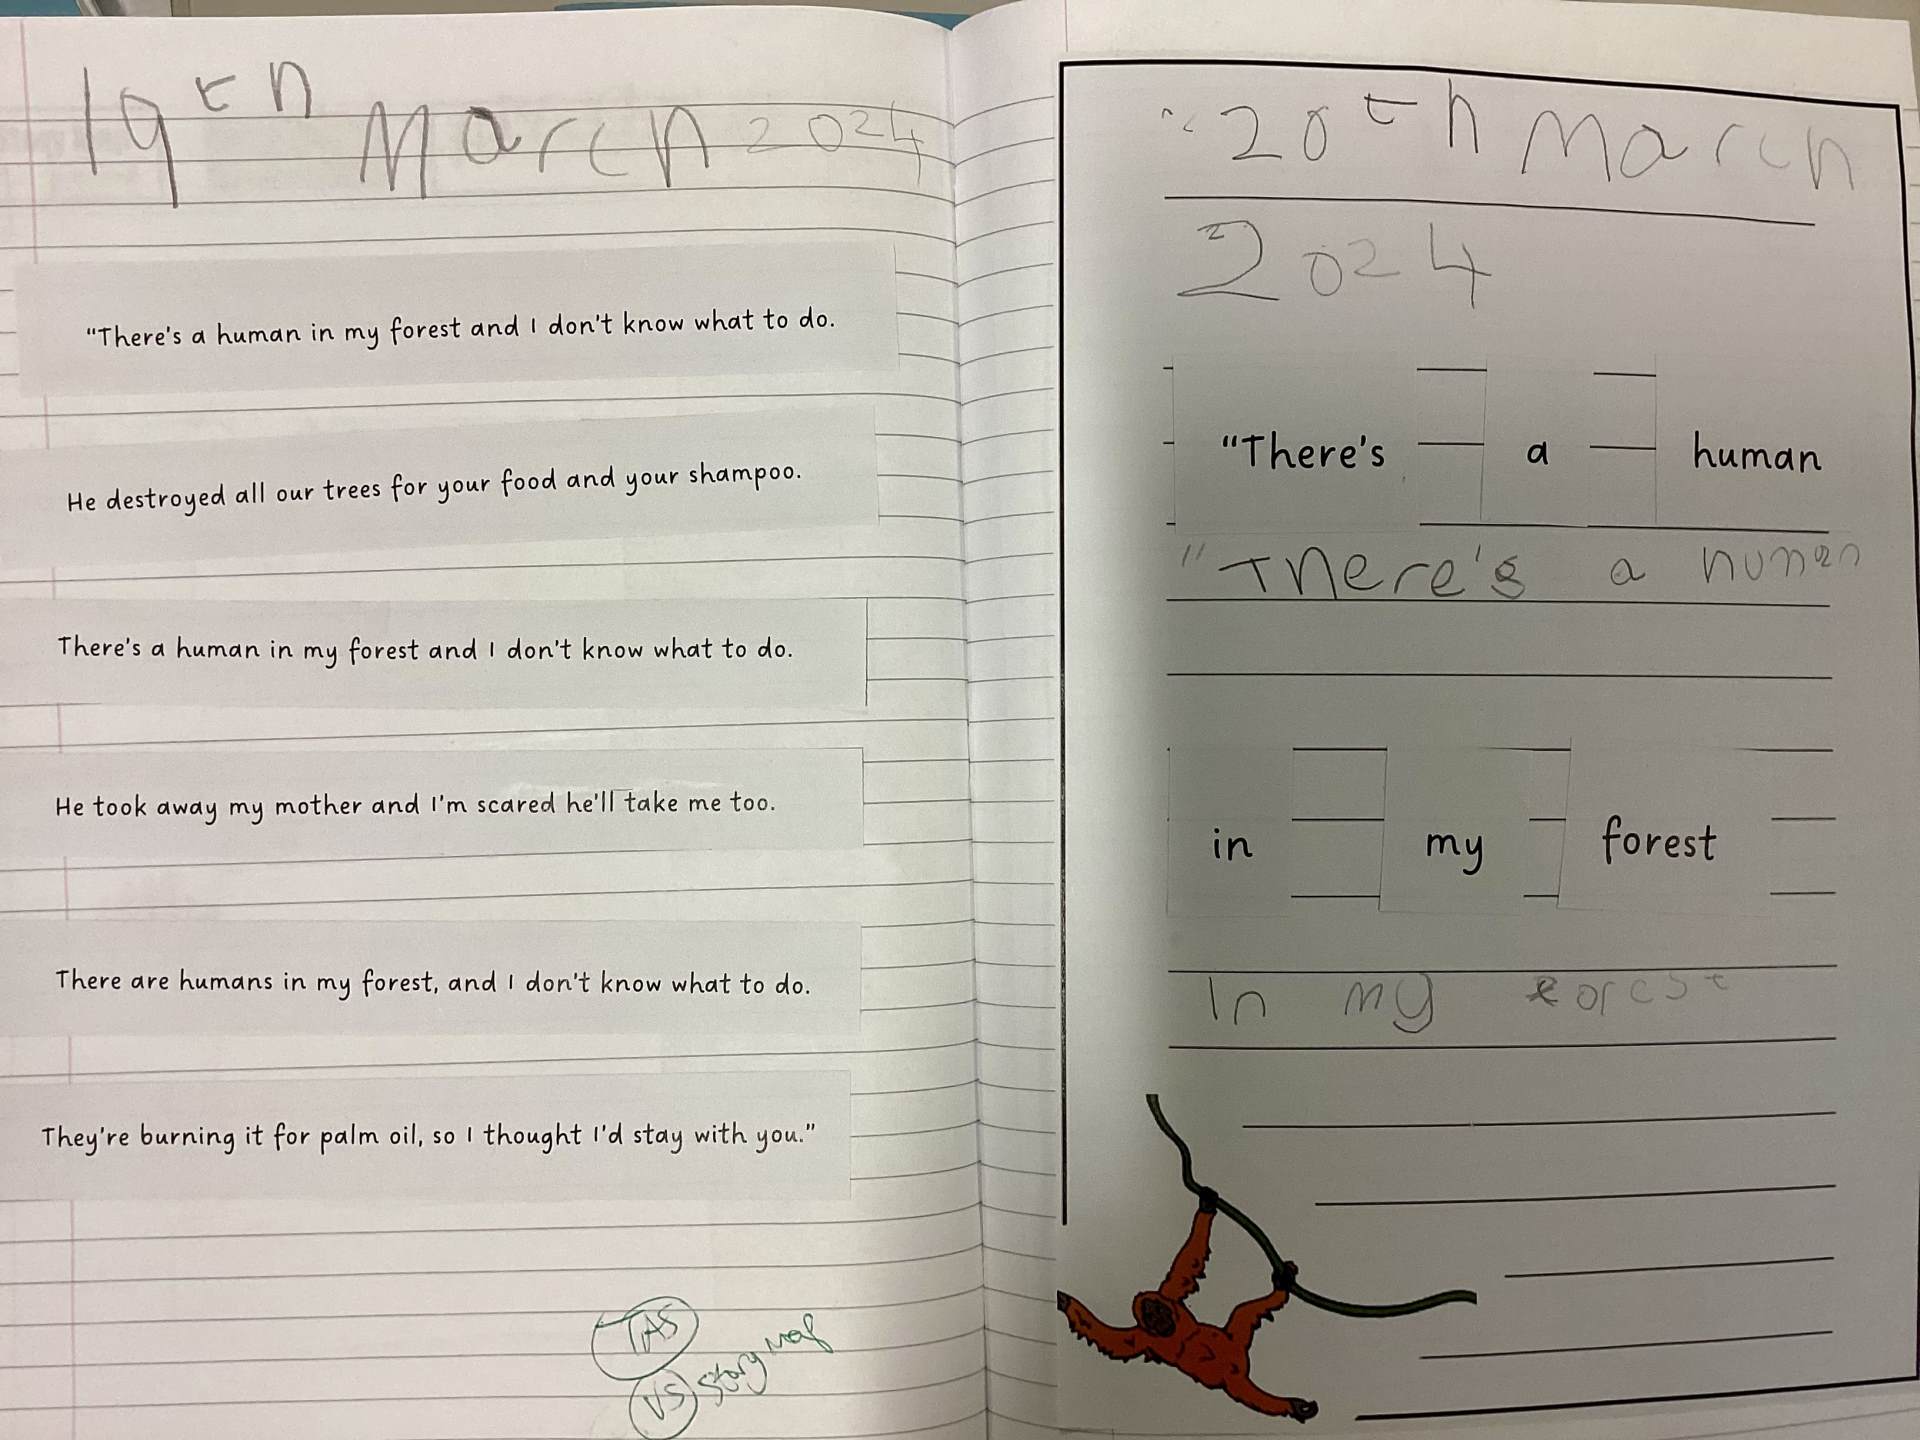 19th March 2024
"There's a human in my forest and I don't know what to do.
He destroyed all our trees for your food and your shampoo.
There's a human in my forest and I don't know what to do.
He took away my mother and I'm scared he'll take me too.
There are humans in my forest, and I don't know what to do.
They're burning it for palm oil, so I thought I'd stay with you."
TAS
VS Story map
20th March
2024
"There's a human
"There's a human
in my forest
In my forest